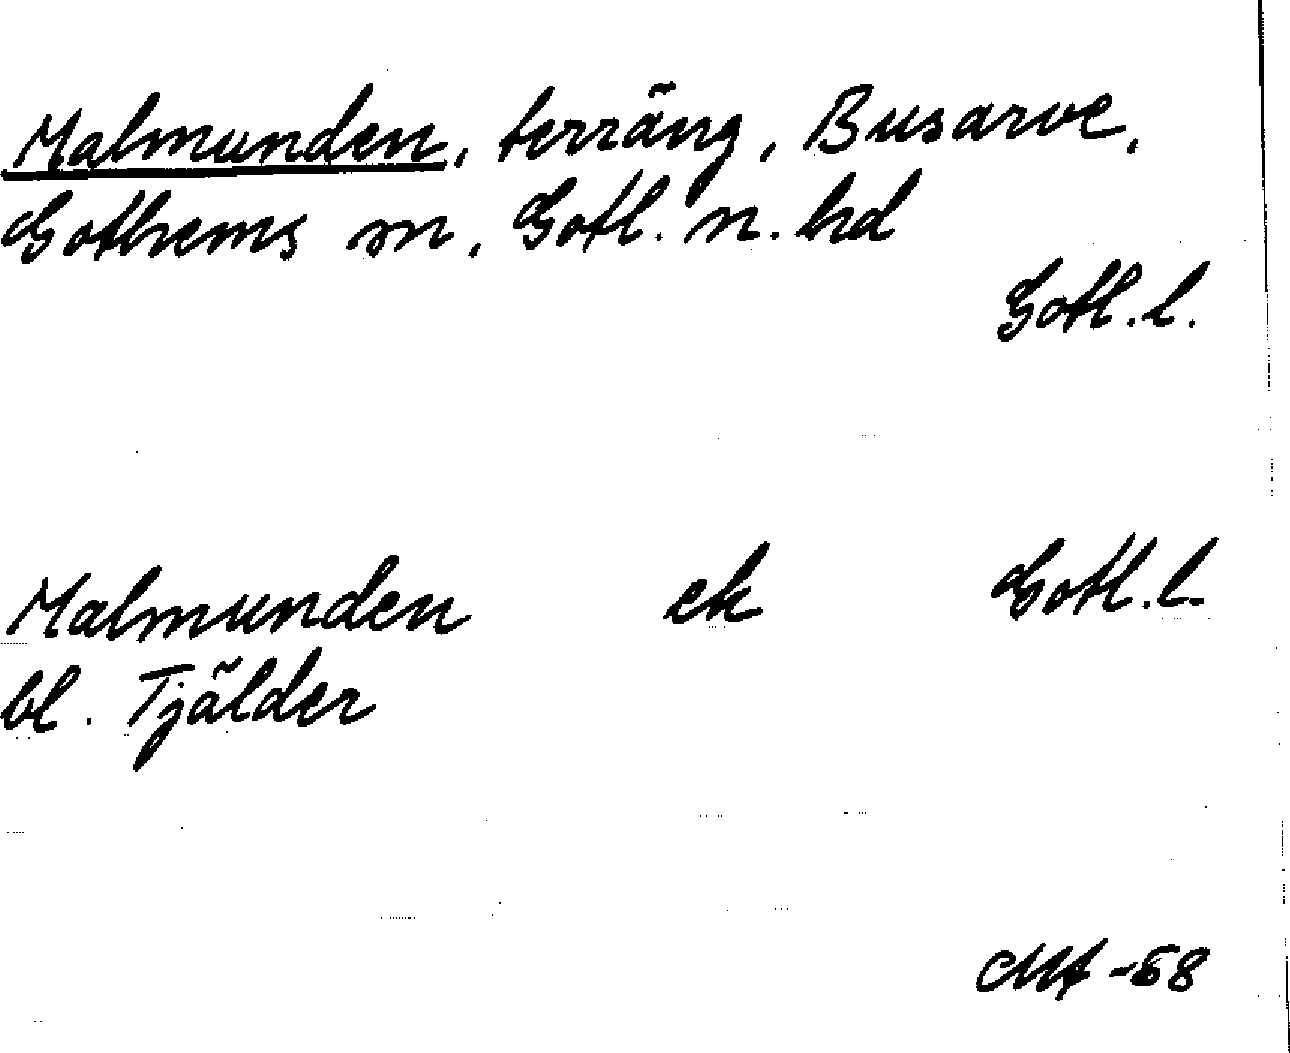 Malmunden, terräng, Busarve,
Gothems sn, Gotl. n. hd
Gotl. l.
Malmunden ek Gotl. l.
bl. Tjälder